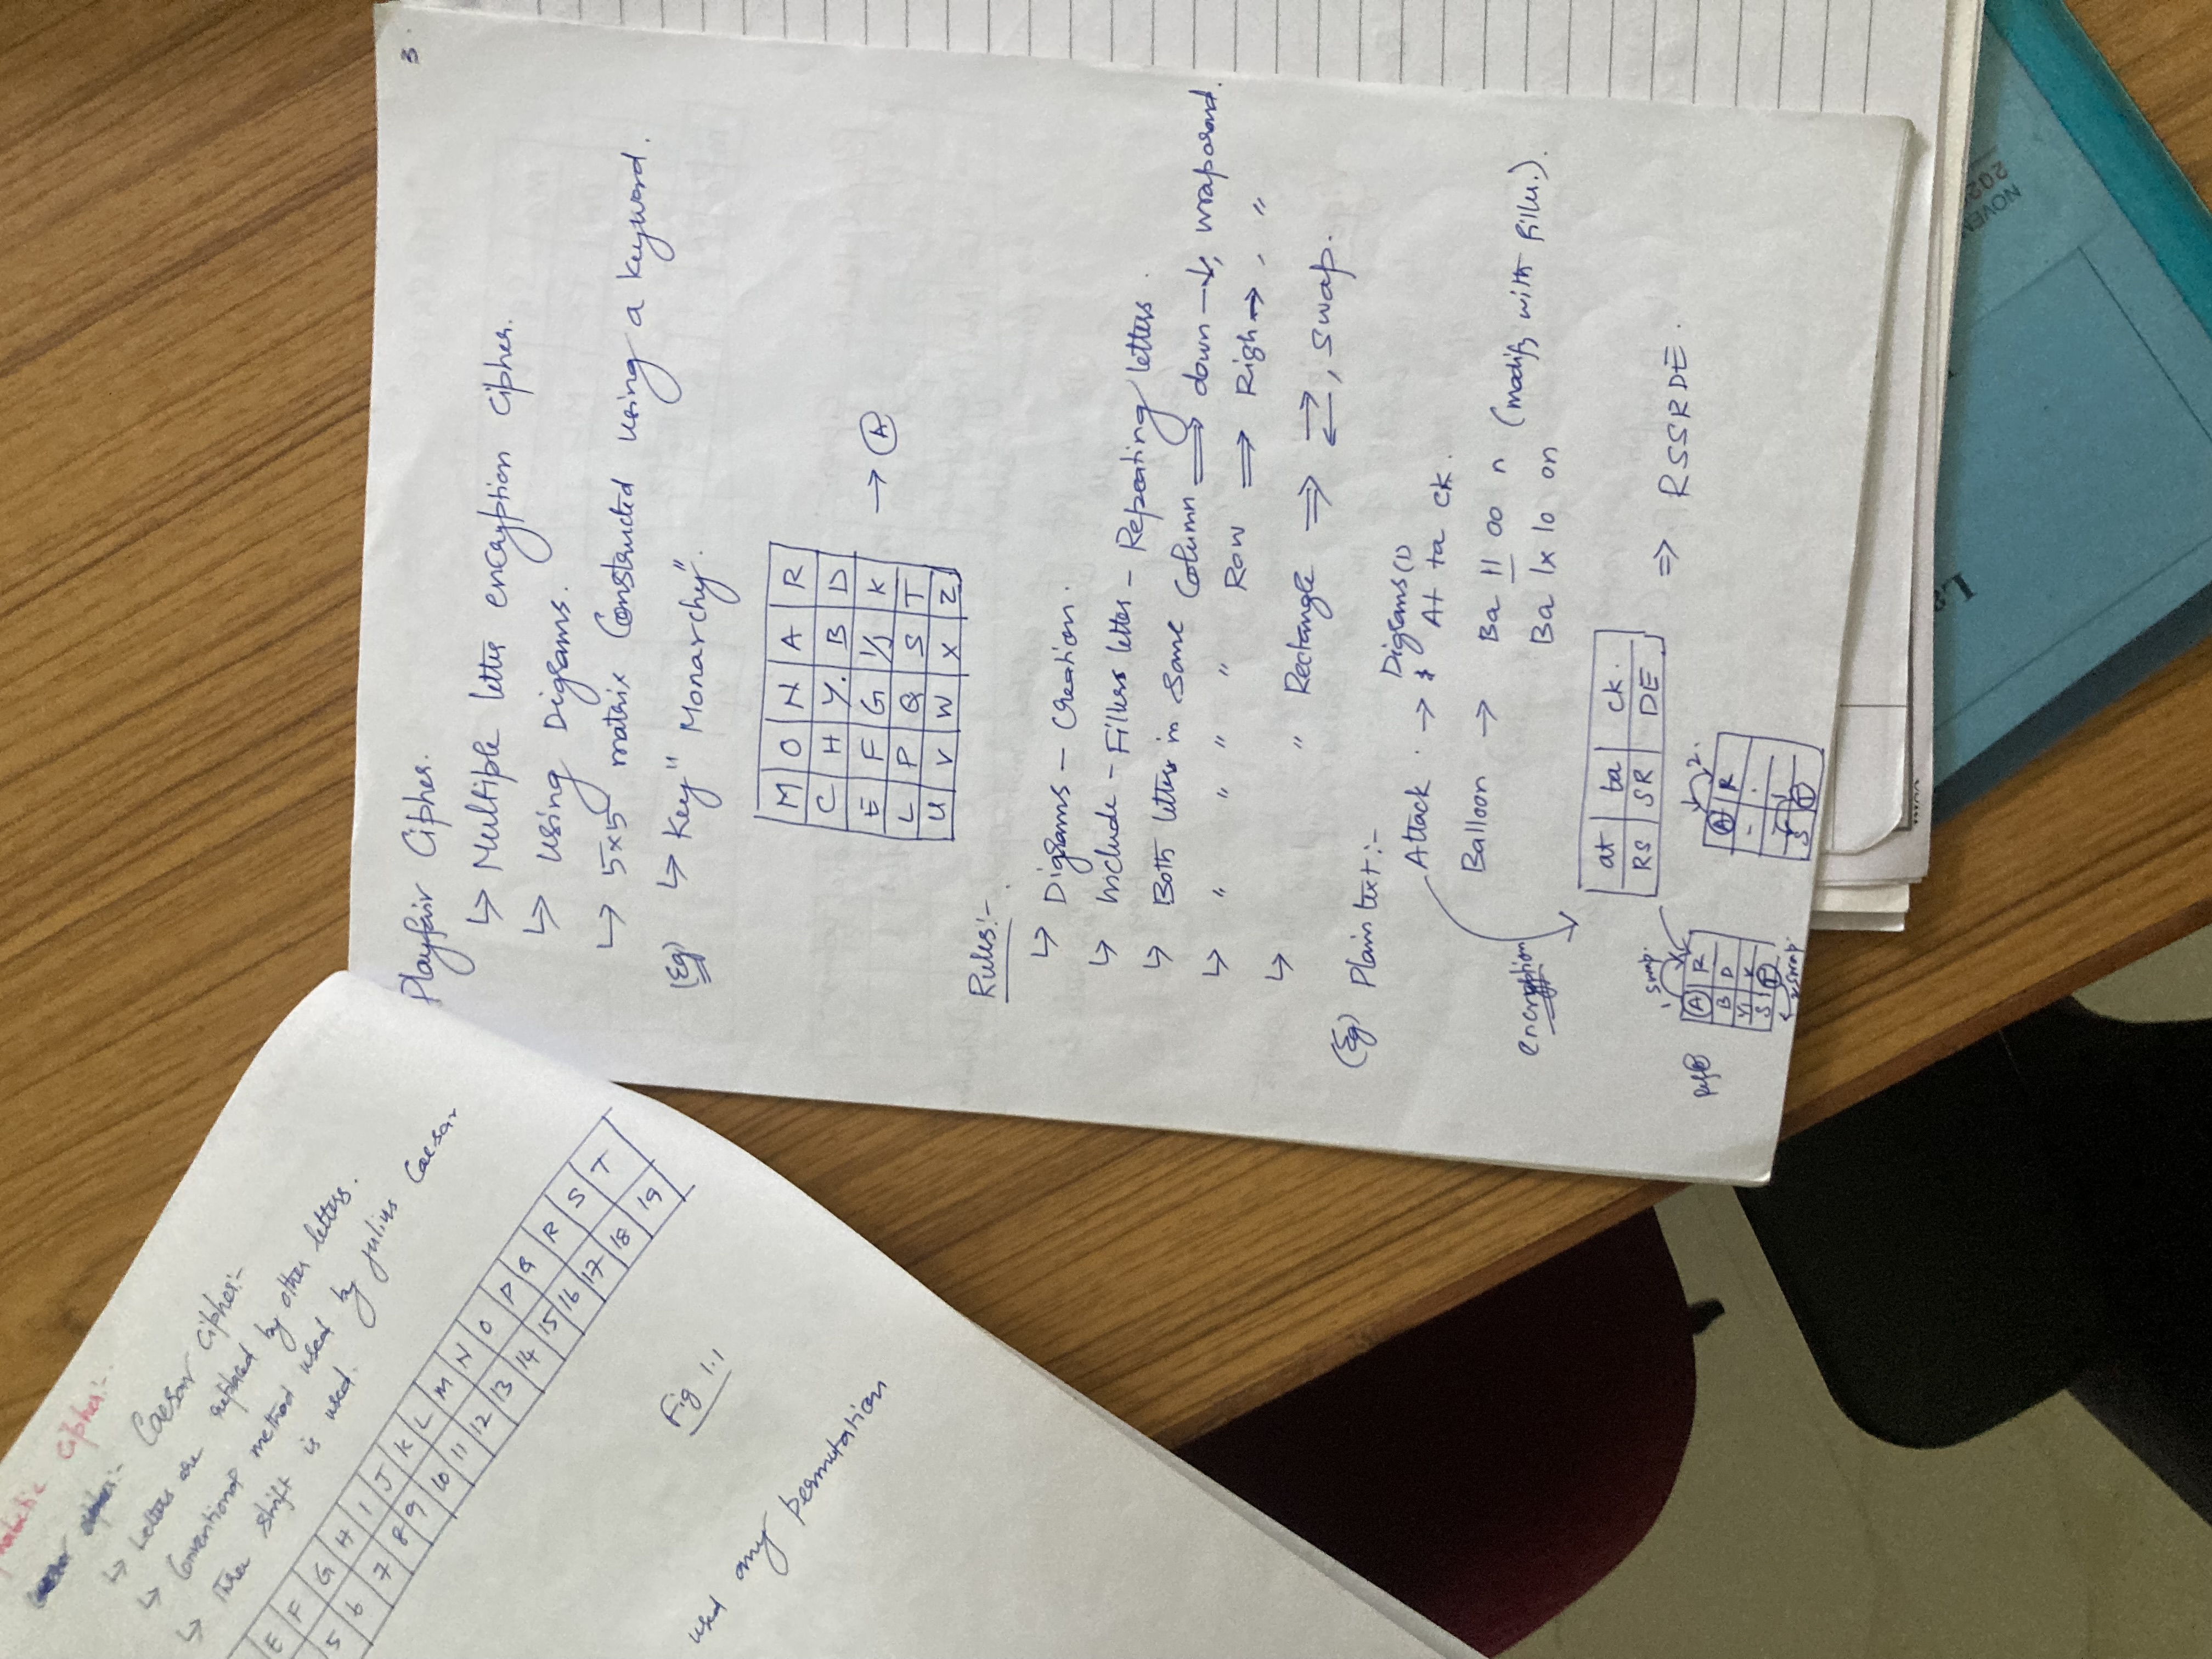 cipher:-
Caesar cipher:-
↳ Letters are replaced by other letters.
↳ Conventional method used by Julius Caesar
↳ Three shift is used.
E F G H I J K L M N O P Q R S T
5 6 7 8 9 10 11 12 13 14 15 16 17 18 19
Fig 1.1
used any permutation
3.
Playfair Cipher.
↳ Multiple letter encryption cipher.
↳ Using Digrams.
↳ 5x5 matrix Constructed using a keyword.
(Eg) ↳ Key "Monarchy".
M O N A R
C H Y. B D
E F G I/J K → A
L P Q S T
U V W X Z
Rules:-
↳ Digrams – Creation.
↳ Include – Fillers letter – Repeating letters.
↳ Both letters in same Column ⟹ down –↓, wraparound.
↳ " " " " Row ⟹ Righ→, "
↳ " Rectangle ⟹ ⇄, swap.
(Eg) Plain text:-
Digrams(1)
Attack → At ta ck.
Balloon → Ba ll oo n (modify with filler.)
Ba lx lo on
encryption
at ta ck.
RS SR DE ⇒ RSSRDE.
1 swap.
2.
A R
B D
K
S T
swap
A R
- .
S T
NOVEM